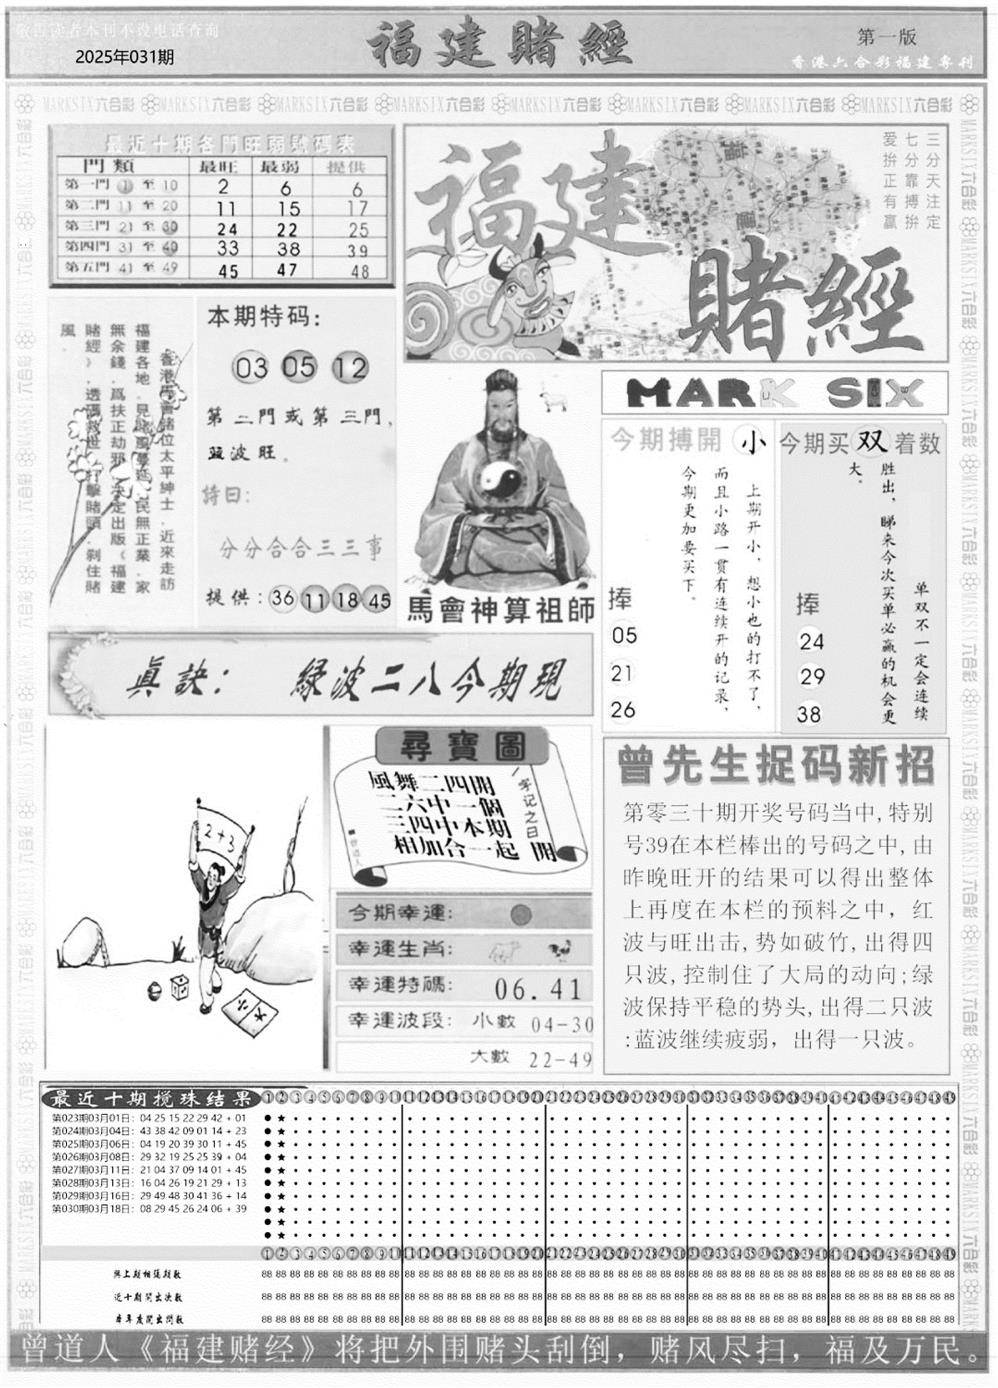 敬告读者本刊不设电话查询
2025年031期
福建賭經
第一版
香港六合彩福建專刊
MARKSIX六合彩 MARKSIX六合彩 MARKSIX六合彩 MARKSIX六合彩 MARKSIX六合彩 MARKSIX六合彩 MARKSIX六合彩 MARKSIX六合彩
最近十期各門旺弱號碼表
門類 最旺 最弱 提供
第一門 1 至 10 2 6 6
第二門 11 至 20 11 15 17
第三門 21 至 30 24 22 25
第四門 31 至 40 33 38 39
第五門 41 至 49 45 47 48
福建
賭經
三分天注定
七分靠搏拚
爱拚正有赢
香港馬會諸位太平紳士．近來走訪
福建各地．見賭風蔓延．民無正業．家
無余錢．爲扶正劫邪．決定出版《福建
賭經》．透碼救世．打擊賭頭．剎住賭
風．
本期特码：
03 05 12
第二門或第三門，
蓝波旺。
詩曰：
分分合合三三事
提供：36 11 18 45
馬會神算祖師
MARK SIX
今期搏開 小
上期开小，想小也的打不了，
而且小路一贯有连续开的记录，
今期更加要买下。
捧
05
21
26
今期买 双 着数
单双不一定会连续
胜出，睇来今次买单必赢的机会更
大。
捧
24
29
38
真訣： 緑波二八今期現
2+3
尋寶圖
風舞二四開
二六中一個
三四中本期
相加合一起
一字记之曰：開
曾道人
今期幸運：
幸運生肖：
幸運特碼： 06.41
幸運波段： 小數 04-30
大數 22-49
曾先生捉码新招
第零三十期开奖号码当中,特别
号39在本栏棒出的号码之中,由
昨晚旺开的结果可以得出整体
上再度在本栏的预料之中，红
波与旺出击,势如破竹,出得四
只波,控制住了大局的动向;绿
波保持平稳的势头,出得二只波
:蓝波继续疲弱，出得一只波。
最近十期搅珠结果
第023期03月01日：04 25 15 22 29 42 + 01
第024期03月04日：43 38 42 09 01 14 + 23
第025期03月06日：04 19 20 39 30 11 + 45
第026期03月08日：29 32 19 25 25 39 + 04
第027期03月11日：21 04 37 09 14 01 + 45
第028期03月13日：16 04 26 19 21 29 + 13
第029期03月16日：29 49 48 30 41 36 + 14
第030期03月18日：08 29 45 26 24 06 + 39
與上期相隔期數
近十期開出次數
本年度開出期數
曾道人《福建赌经》将把外围赌头刮倒，赌风尽扫，福及万民。